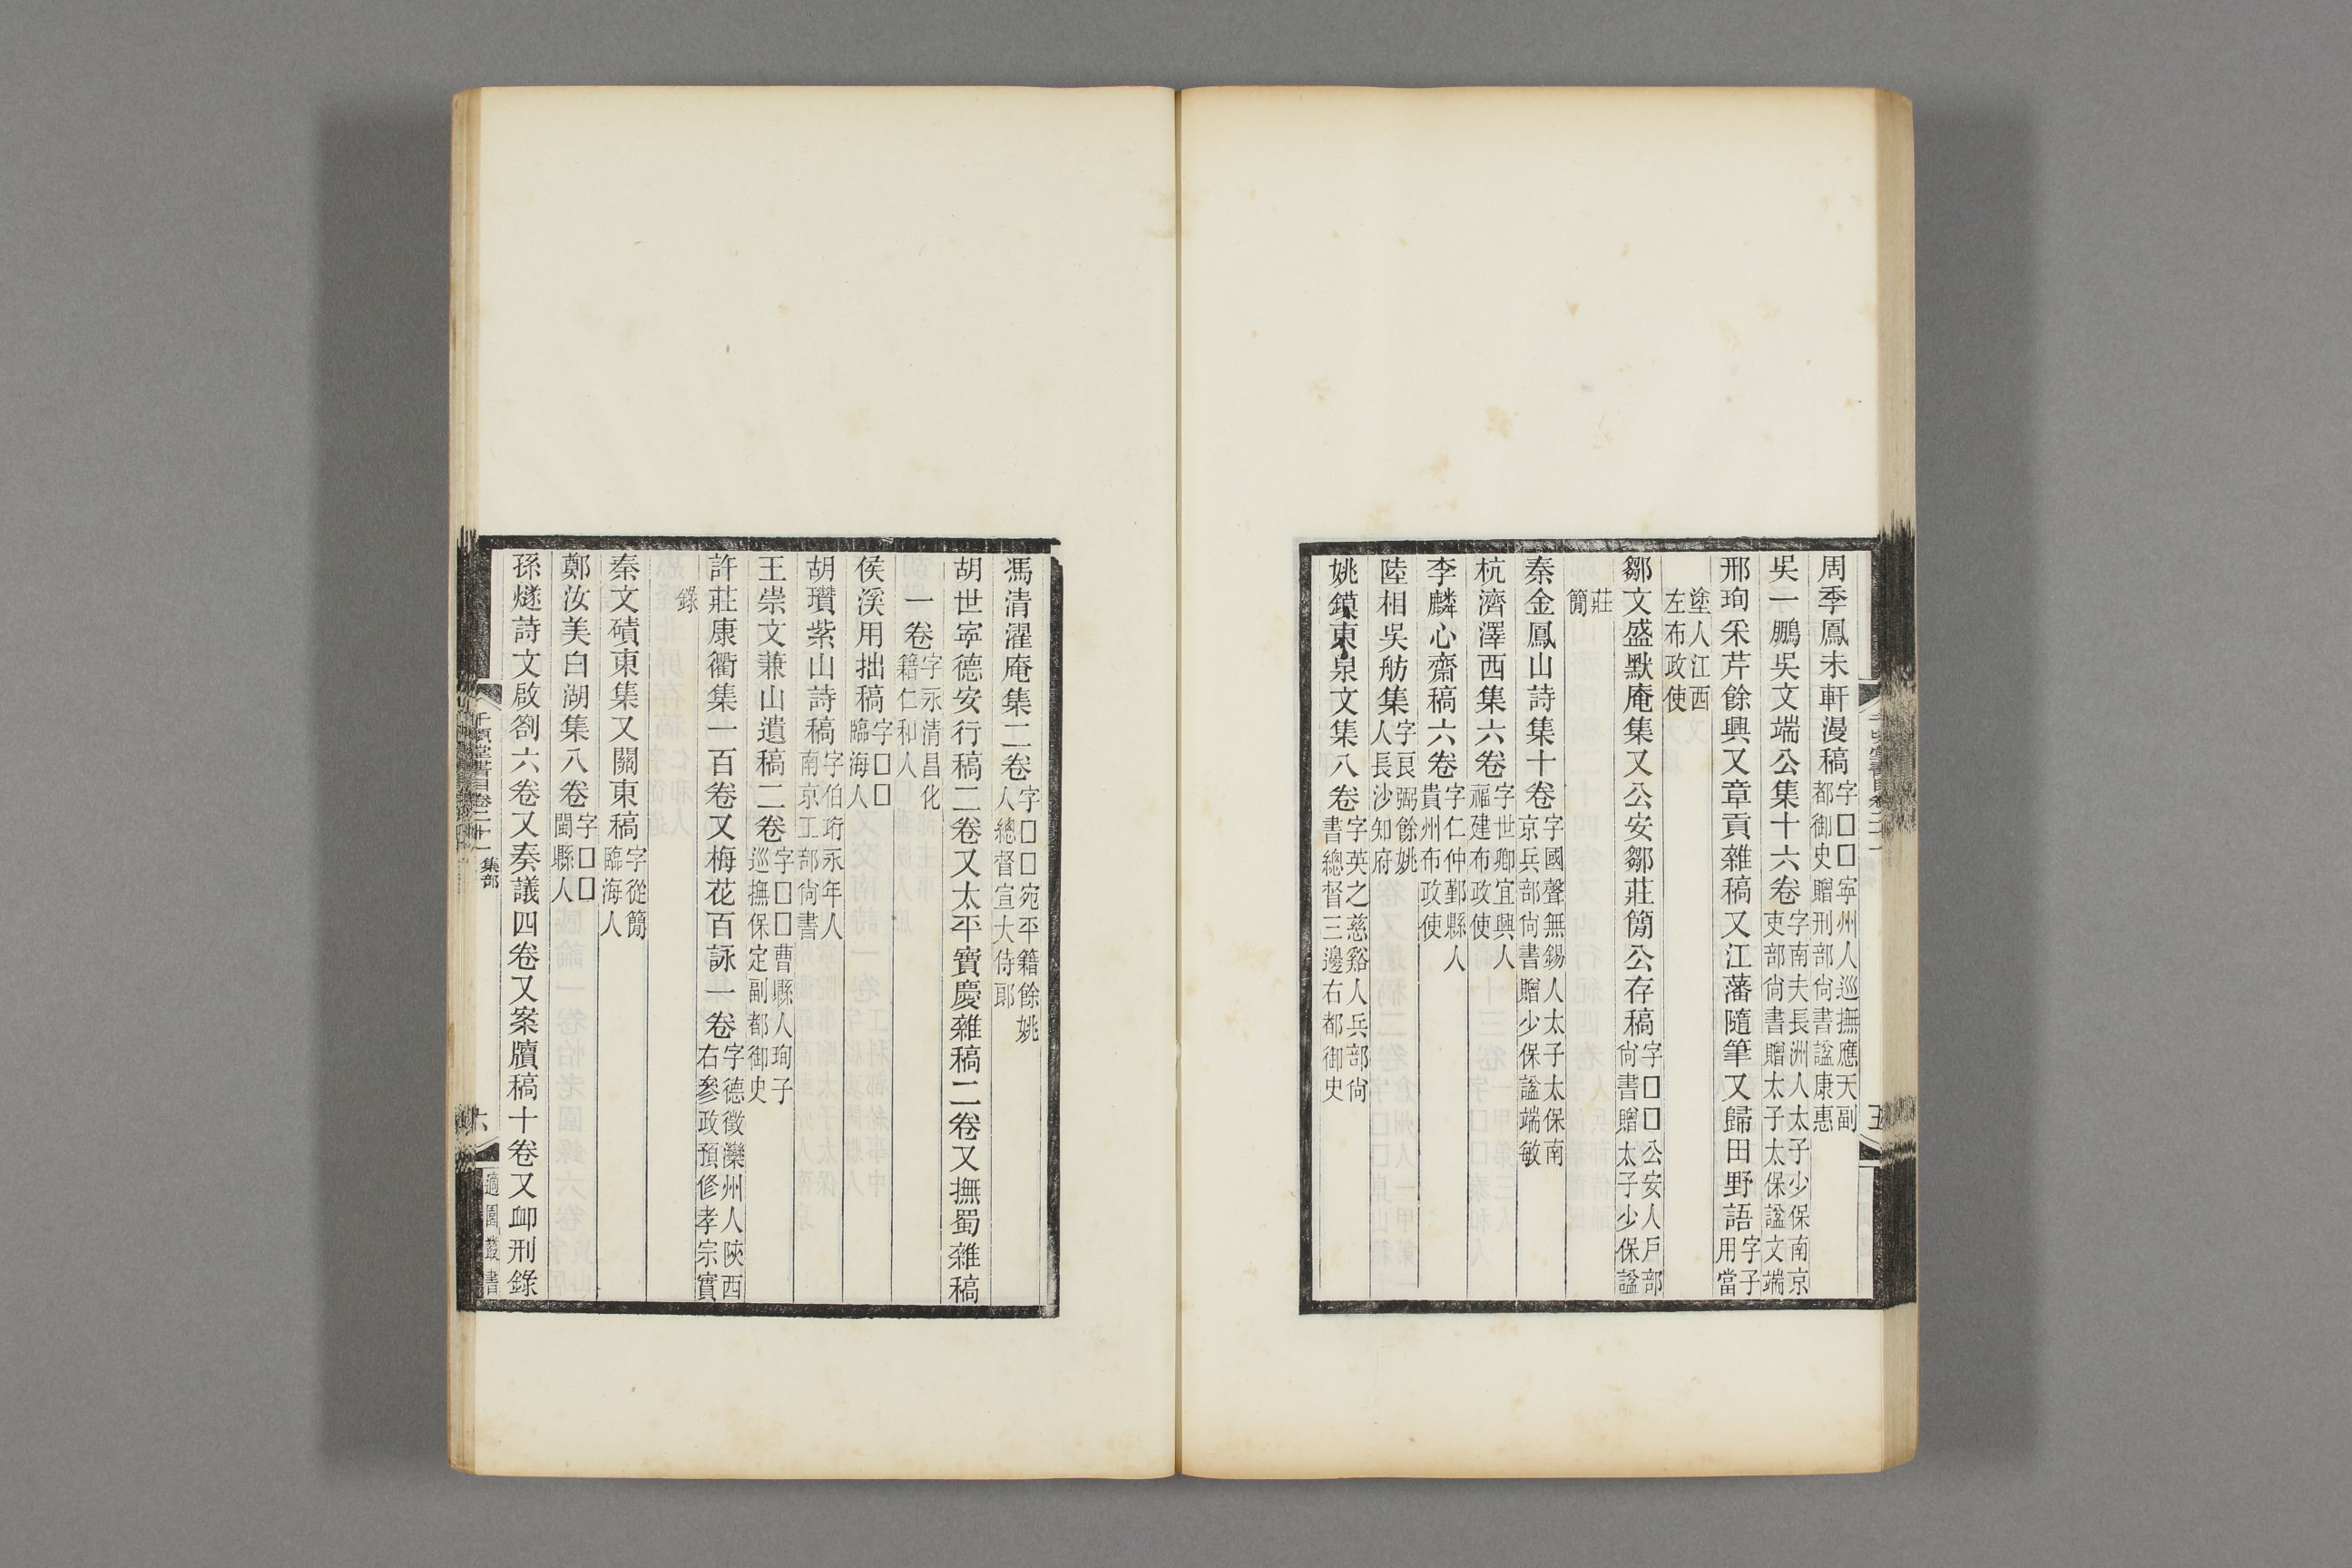 周季鳳未軒漫稿字□□寧州人巡撫應天副都御史贈刑部尙書諡康惠
吳一鵬吳文端公集十六卷字南夫長洲人太子少保南京吏部尙書贈太子太保諡文端
邢珣采芹餘興又章貢雜稿又江藩隨筆又歸田野語字子用當
塗人江西左布政使
鄒文盛默庵集又公安鄒莊簡公存稿字□□公安人戶部尙書贈太子少保諡
莊簡
秦金鳳山詩集十卷字國聲無錫人太子太保南京兵部尙書贈少保諡端敏
杭濟澤西集六卷字世卿宜興人福建布政使
李麟心齋稿六卷字仁仲鄞縣人貴州布政使
陸相吳舫集字良弼餘姚人長沙知府
姚鏌東泉文集八卷字英之慈谿人兵部尙書總督三邊右都御史
五
馮清濯庵集二卷字□□宛平籍餘姚人總督宣大侍郞
胡世寧德安行稿二卷又太平寶慶雜稿二卷又撫蜀雜稿
一卷字永清昌化籍仁和人
侯溪用拙稿字□□臨海人
胡瓚紫山詩稿字伯珩永年人南京工部尙書
王崇文兼山遺稿二卷字□□曹縣人珣子巡撫保定副都御史
許莊康衢集一百卷又梅花百詠一卷字德徵灤州人陝西右參政預修孝宗實
錄
秦文磧東集又關東稿字從簡臨海人
鄭汝美白湖集八卷字□□閩縣人
孫燧詩文啟劄六卷又奏議四卷又案牘稿十卷又卹刑錄
千頃堂書目卷二十一 集部
六
適園叢書